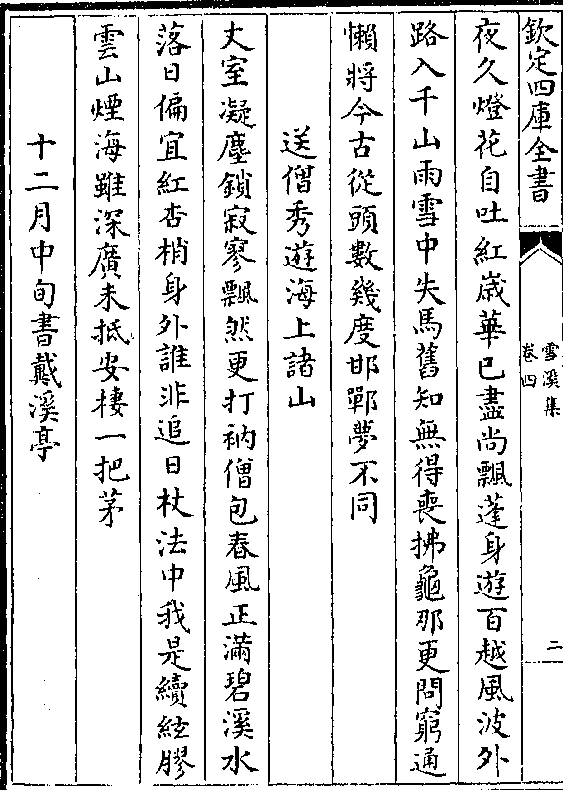 欽定四庫全書
雪溪集
卷四
二
夜久燈花自吐紅嵗華已盡尚飄蓬身遊百越風波外
路入千山雨雪中失馬舊知無得喪拂龜那更問窮通
懶將今古從頭數幾度邯鄲夢不同
送僧秀遊海上諸山
丈室凝塵鎖寂寥飄然更打衲僧包春風正滿碧溪水
落日偏宜紅杏梢身外誰非追日杖法中我是續絃膠
雲山煙海雖深廣未抵安棲一把茅
十二月中旬書戴溪亭